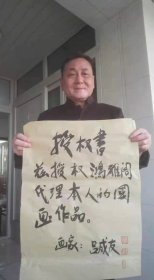 授权书
兹授权鸿雅阁
代理本人的国
画作品。
画家：吕威友